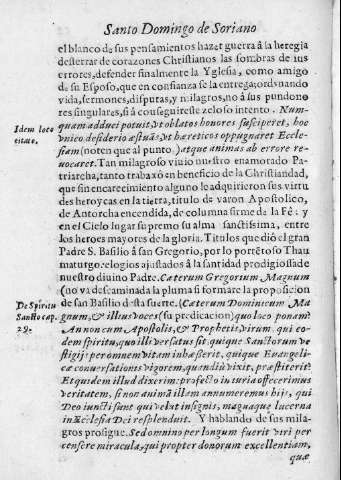 Santo Domingo de Soriano
el blanco de sus pensamientos hazer guerra â la heregia
desterrar de corazones Christianos las sombras de sus
errores, defender finalmente la Yglesia, como amigo
de su Esposo, que en confianza se la entrega, ordenando
vida, sermones, disputas, y milagros, no â sus pundono
res singulares, si â conseguir este zeloso intento. Num-
Idem loco
citato.
quam adduci potuit vt oblatos honores susciperet, hoc
vnico desiderio æstuās vt hæreticos oppugnaret Eccle-
siam (noten que al punto) atque animas ab errore re
uocaret. Tan milagroso viuio nuestro enamorado Pa
triarcha, tanto trabaxô en beneficio de la Christiandad,
que sin encarecimiento alguno le adquirieron sus virtu
des heroycas en la tierra, titulo de varon Apostolico,
de Antorcha encendida, de columna firme de la Fê: y
en el Cielo lugar supremo su alma sanctissima, entre
los heroes mayores de la gloria. Titulos que diô el gran
Padre S. Basilio â san Gregorio, por lo portētoso Thau
maturgo: elogios ajustados â la santidad prodigiosa de
nuestro diuino Padre. Cæterum Gregorium Magnum
(no va descaminada la pluma si formare la proposicion
De Spiritu
Sancto cap.
29.
de san Basilio desta suerte. (Cæterum Dominicum Ma
gnum, & illius voces (su predicacion) quo loco ponam?
An non cum Apostolis, & Prophetis, virum. qui eo-
dem spiritu, quo illi versatus sit, quique Sanctorum ve
stigijs per omnem vitam inhæserit, quique Euangeli-
cæ conuersationis vigorem, quandiù vixit, præstiterit?
Et quidem illud dixerim: profectò iniuria affecerimus
veritatem, si non animā illam annumeremus hijs, qui
Deo iuncti sunt qui velut insignis, magnaque lucerna
in Ecclesia Dei resplenduit. Y hablando de sus mila-
gros prosigue. Sed omnino per longum fuerit viri per
censere miracula, qui propter donorum excellentiam,
quæ